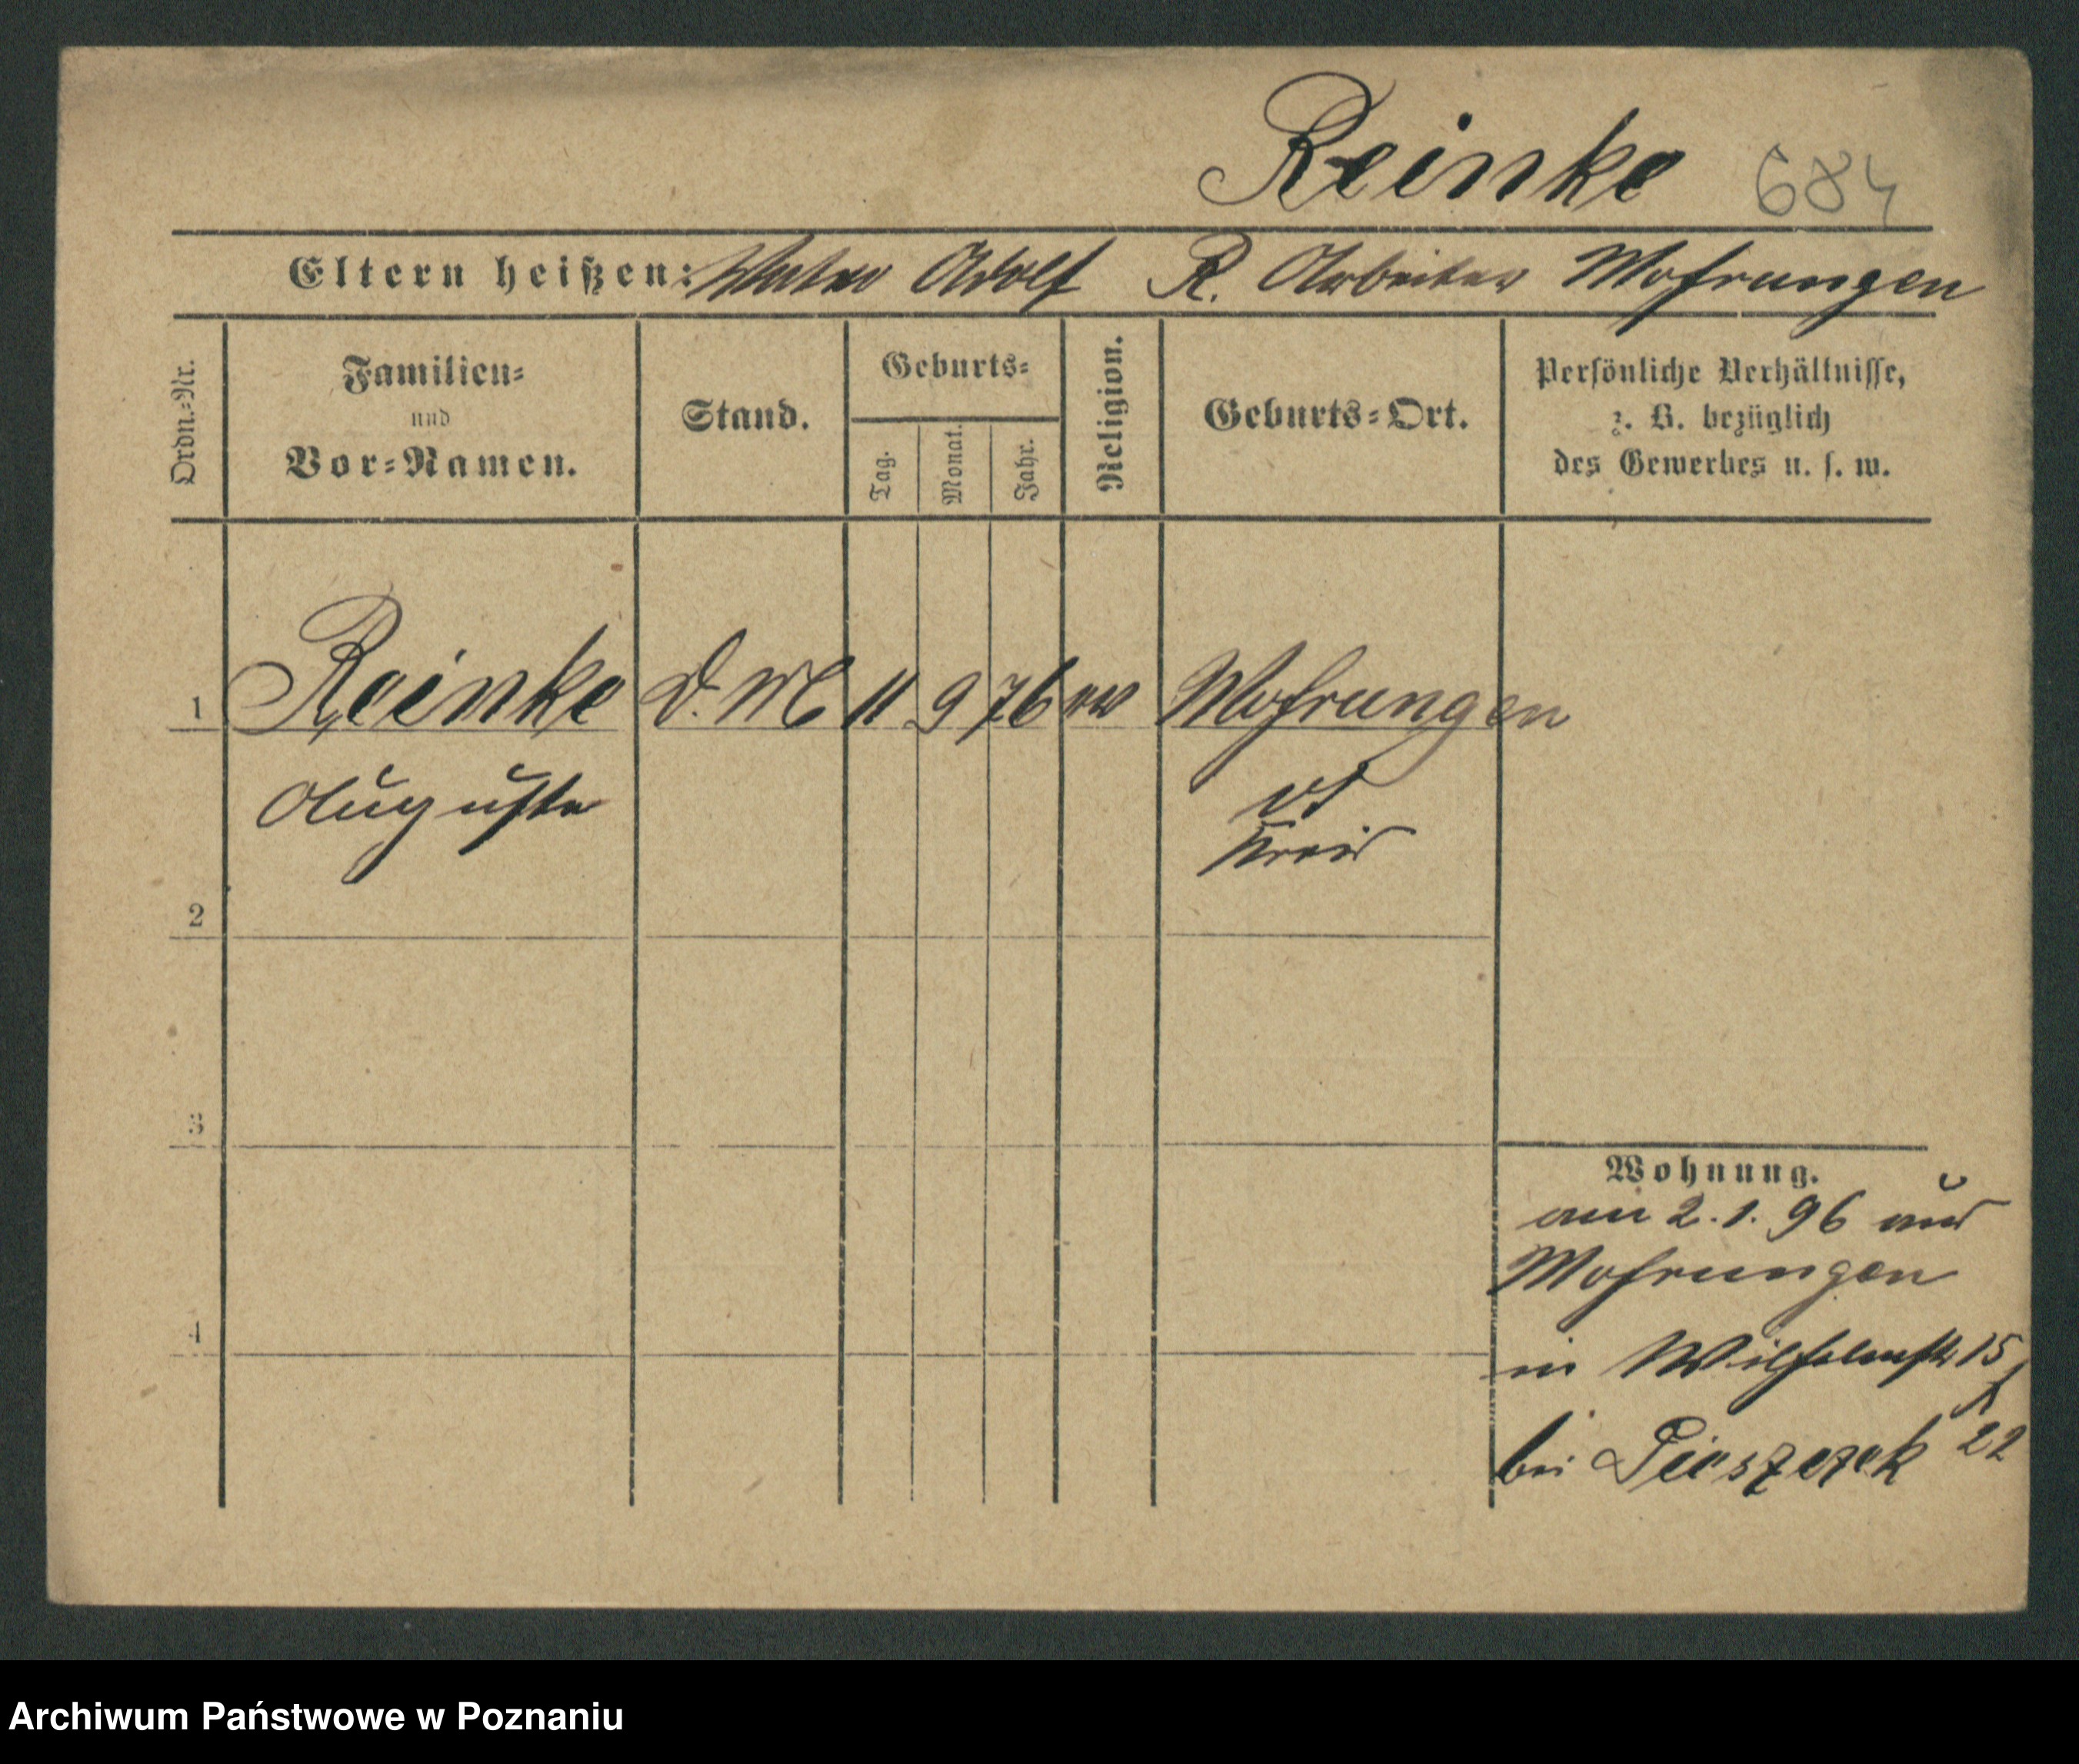 Reinke 684
Eltern heißen: Vater Adolf R. Arbeiter Mohrungen
Ordn.-Nr.
Familien-
und
Vor-Namen.
Stand.
Geburts-
Tag.
Monat.
Jahr.
Religion.
Geburts-Ort.
Persönliche Verhältnisse,
z. B. bezüglich
des Gewerbes u. s. w.
1 Reinke D. M 11 9 76 ev Mohrungen
Auguste
Kreis
2
3
4
Wohnung.
am 2. 1. 96 aus
Mohrungen
in Wilhelmstr 15
bei 22
Archiwum Państwowe w Poznaniu